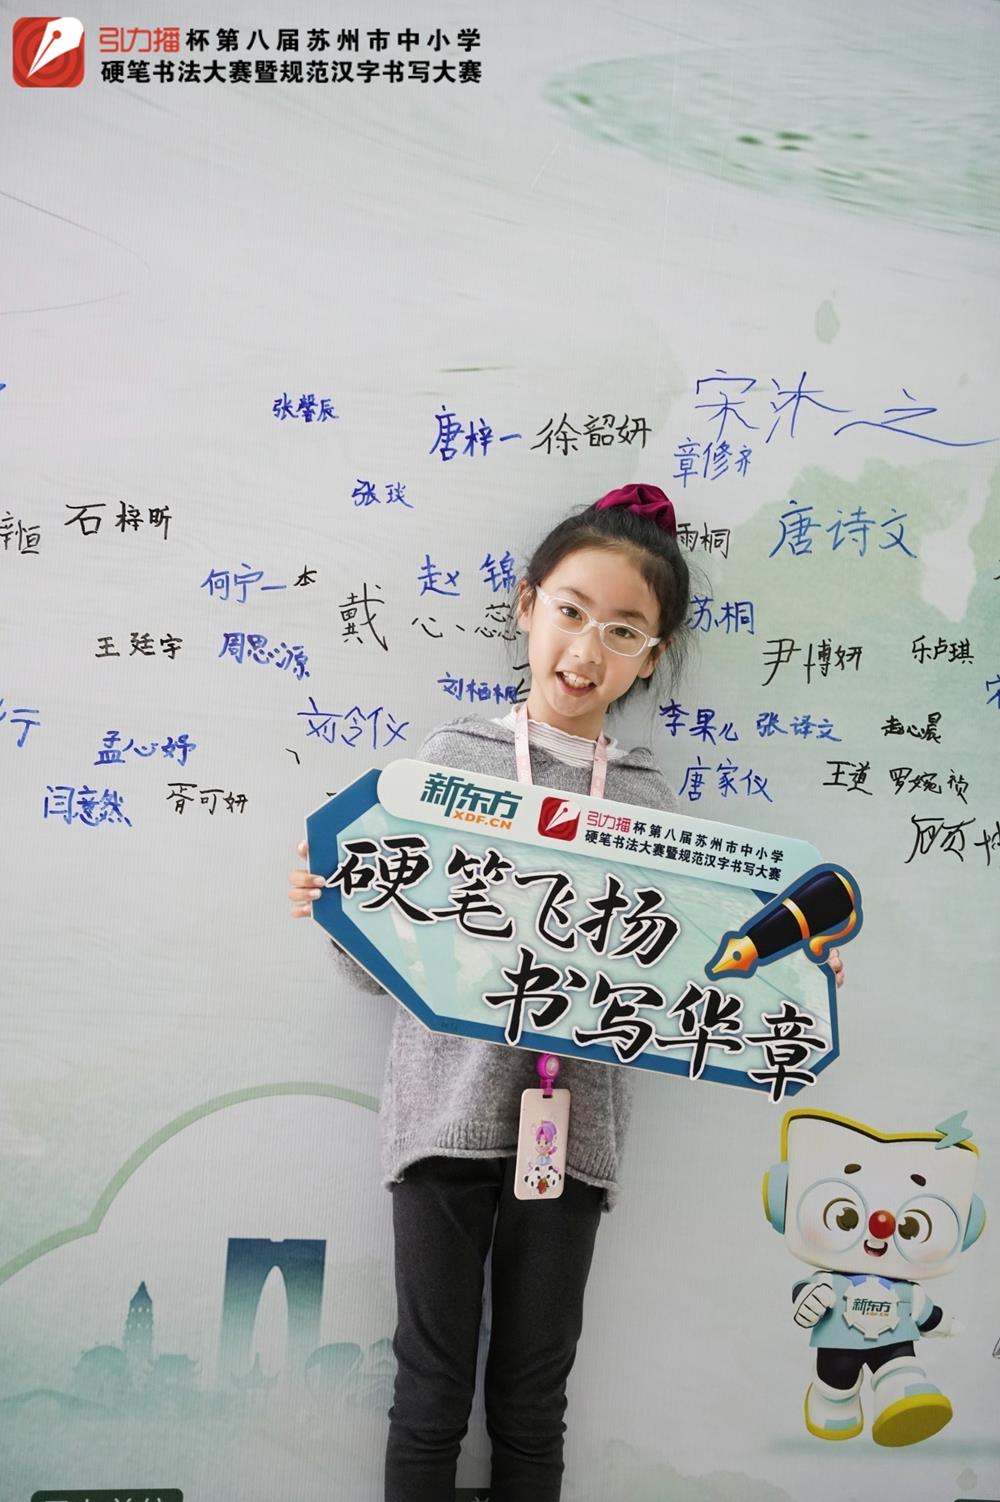 引力播杯第八届苏州市中小学
硬笔书法大赛暨规范汉字书写大赛
张馨辰
唐梓一
徐韶妍
宋沐之
章修齐
张琰
石梓昕
辛恒
雨桐
唐诗文
何宁一
本
赵锦
戴心蕊
苏桐
王廷宇
周思源
尹博妍
乐卢琪
刘栖桐
刘令仪
李果儿
张译文
赵心晨
孟心妤
闫意然
胥可妍
唐家仪
王道
罗婉祯
顾
新东方
XDF.CN
引力播杯第八届苏州市中小学
硬笔书法大赛暨规范汉字书写大赛
硬笔飞扬
书写华章
新东方
XDF.CN